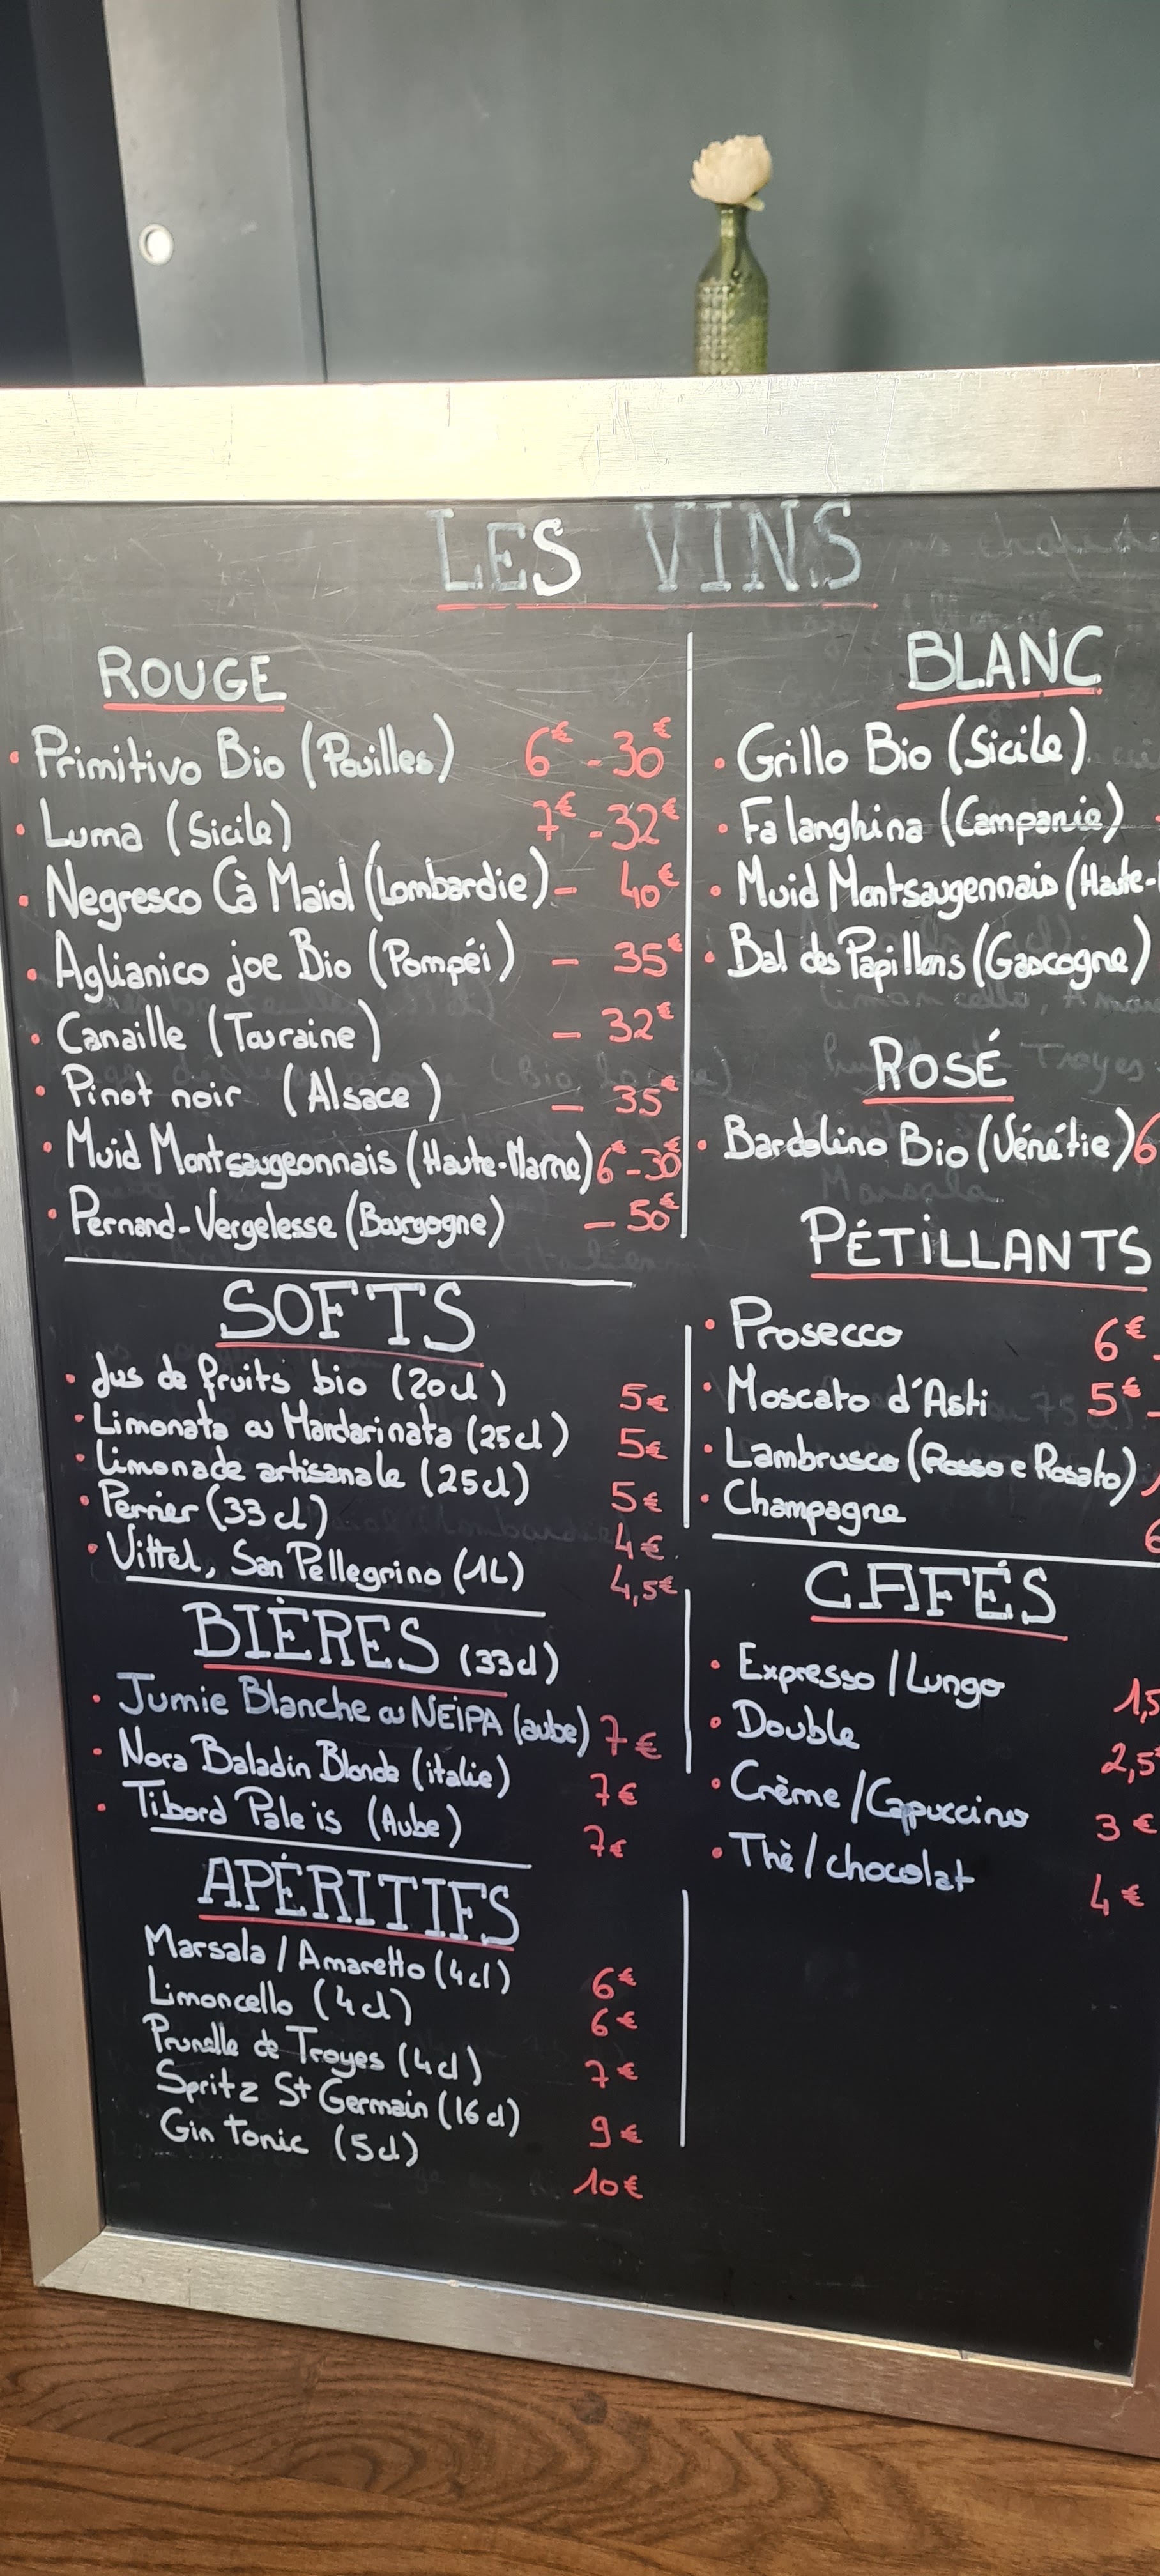 LES VINS
ROUGE
• Primitivo Bio (Pouilles) 6€ - 30€
• Luma (Sicile) 7€ - 32€
• Negresco Cà Maiol (Lombardie) - 40€
• Aglianico joe Bio (Pompéi) - 35€
• Canaille (Touraine) - 32€
• Pinot noir (Alsace) - 35€
• Muid Montsaugeonnais (Haute-Marne) 6€ - 30€
• Pernand-Vergelesse (Bourgogne) - 50€
SOFTS
• Jus de fruits bio (20cl) 5€
• Limonata ou Mandarinata (25cl) 5€
• Limonade artisanale (25cl) 5€
• Perrier (33cl) 4€
• Vittel, San Pellegrino (1L) 4,5€
BIÈRES (33cl)
• Jumie Blanche ou NEIPA (aube) 7€
• Nora Baladin Blonde (italie) 7€
• Tibord Pale is (Aube) 7€
APÉRITIFS
Marsala / Amaretto (4cl) 6€
Limoncello (4cl) 6€
Prunelle de Troyes (4cl) 7€
Spritz St Germain (16cl) 9€
Gin Tonic (5cl) 10€
BLANC
• Grillo Bio (Sicile)
• Falanghina (Campanie)
• Muid Montsaugennais (Haute-
• Bal des Papillons (Gascogne)
ROSÉ
• Bardolino Bio (Vénétie) 6
PÉTILLANTS
• Prosecco 6€ -
• Moscato d'Asti 5€ -
• Lambrusco (Rosso e Rosato)
• Champagne
CAFÉS
• Expresso / Lungo 1,5
• Double 2,5
• Crème / Cappuccino 3€
• Thè / chocolat 4€